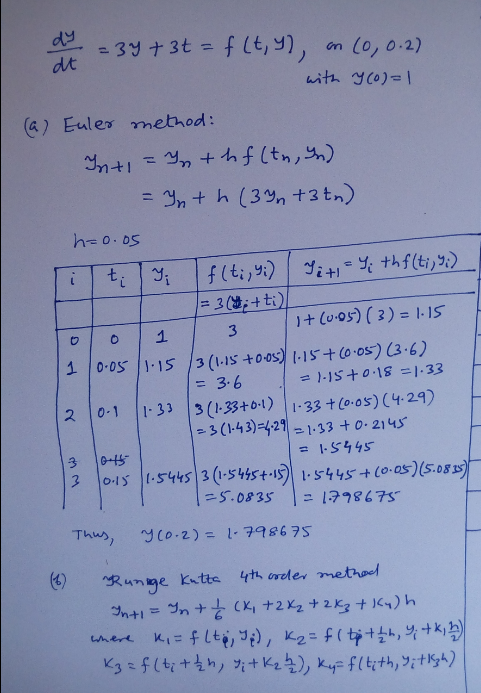 dy/dt = 3y + 3t = f(t, y), on (0, 0.2)
with y(0) = 1
(a) Euler method:
y_{n+1} = y_n + h f(t_n, y_n)
= y_n + h (3y_n + 3t_n)
h = 0.05
i | t_i | y_i | f(t_i, y_i) | y_{i+1} = y_i + h f(t_i, y_i)
= 3(y_i + t_i)
0 | 0 | 1 | 3 | 1 + (0.05)(3) = 1.15
1 | 0.05 | 1.15 | 3(1.15 + 0.05) | 1.15 + (0.05)(3.6)
= 3.6 | = 1.15 + 0.18 = 1.33
2 | 0.1 | 1.33 | 3(1.33 + 0.1) | 1.33 + (0.05)(4.29)
= 3(1.43) = 4.29 | = 1.33 + 0.2145
= 1.5445
3 | 0.15
3 | 0.15 | 1.5445 | 3(1.5445 + .15) | 1.5445 + (0.05)(5.0835)
= 5.0835 | = 1.798675
Thus, y(0.2) = 1.798675
(b) Runge Kutta 4th order method
y_{n+1} = y_n + 1/6 (K_1 + 2K_2 + 2K_3 + K_4) h
where K_1 = f(t_i, y_i), K_2 = f(t_i + 1/2 h, y_i + K_1 h/2)
K_3 = f(t_i + 1/2 h, y_i + K_2 h/2), K_4 = f(t_i + h, y_i + K_3 h)